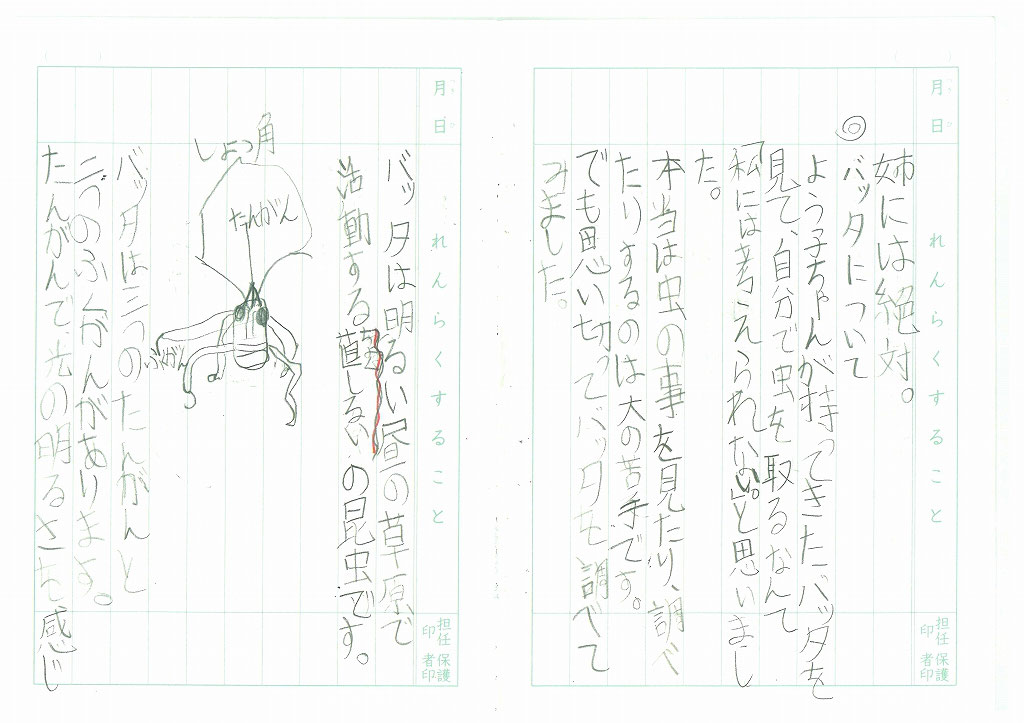 月 日 れんらくすること 担任印 保護者印
姉には絶対。
◎バッタについて
よう子ちゃんが持ってきたバッタを
見て、自分で虫を取るなんて
「私には考えられない。」と思いまし
た。
本当は虫の事を見たり、調べ
たりするのは大の苦手です。
でも思い切ってバッタを調べて
みました。
月 日 れんらくすること 担任印 保護者印
バッタは明るい昼の草原で
活動する直しるいの昆虫です。
しょっ角
たんがん
バッタは三つのたんがんと
二つのふくがんがあります。
たんがんで、光の明るさを感じ